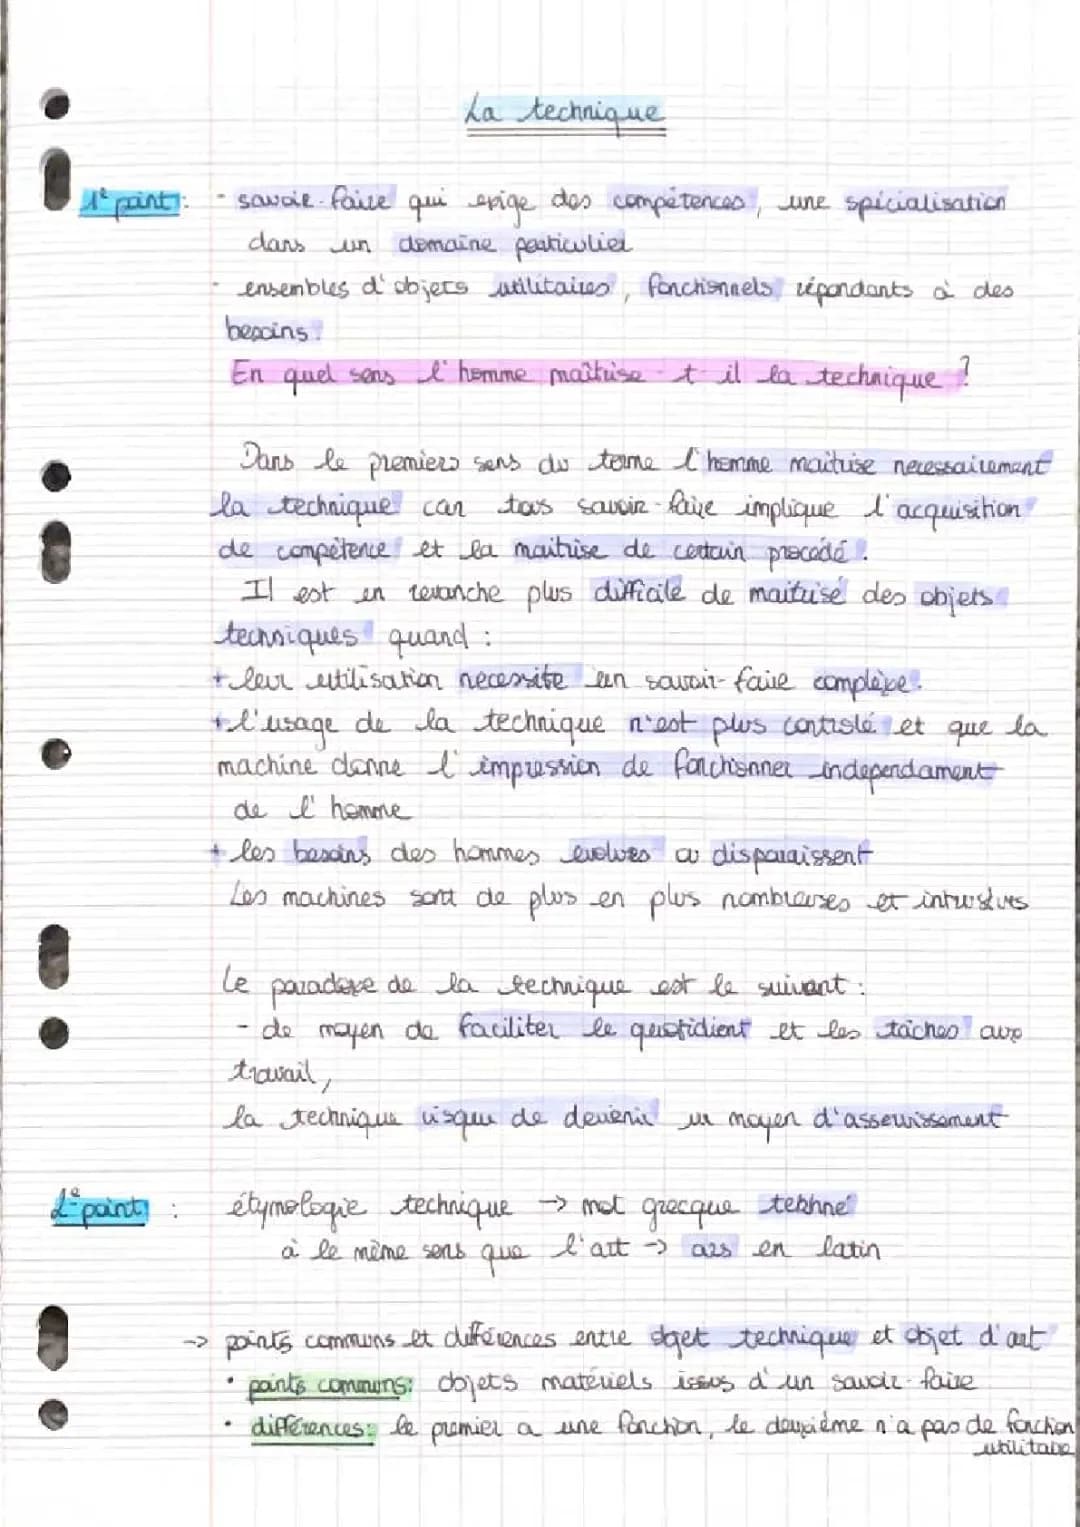 La technique
1e point : - savoir-faire qui exige des compétences, une spécialisation
dans un domaine particulier
- ensembles d'objets utilitaires, fonctionnels répondants à des
besoins.
En quel sens l'homme maîtrise-t-il la technique ?
Dans le premiers sens du terme l'homme maitrise necessairement
la technique car tous savoir-faire implique l'acquisition
de compétence et la maitrise de certain procédé.
Il est en revanche plus difficile de maitrisé des objets
techniques quand :
+ leur utilisation necessite un savoir-faire complexe.
+ l'usage de la technique n'est plus controlé et que la
machine donne l'impression de fonctionner independament
de l'homme
+ les besoins des hommes evolues ou disparaissent
Les machines sont de plus en plus nombreuses et intrusives
Le paradoxe de la technique est le suivant :
- de moyen de faciliter le quotidient et les tâches aux
travail,
la technique risque de devenir un moyen d'asservissement
2e point : étymologie technique → mot grecque tekhné
à le même sens que l'art → ars en latin
→ points communs et différences entre objet technique et objet d'art
• points communs: objets matériels issus d'un savoir-faire
• différences: le premier a une fonction, le deuxième n'a pas de fonction
utilitaire